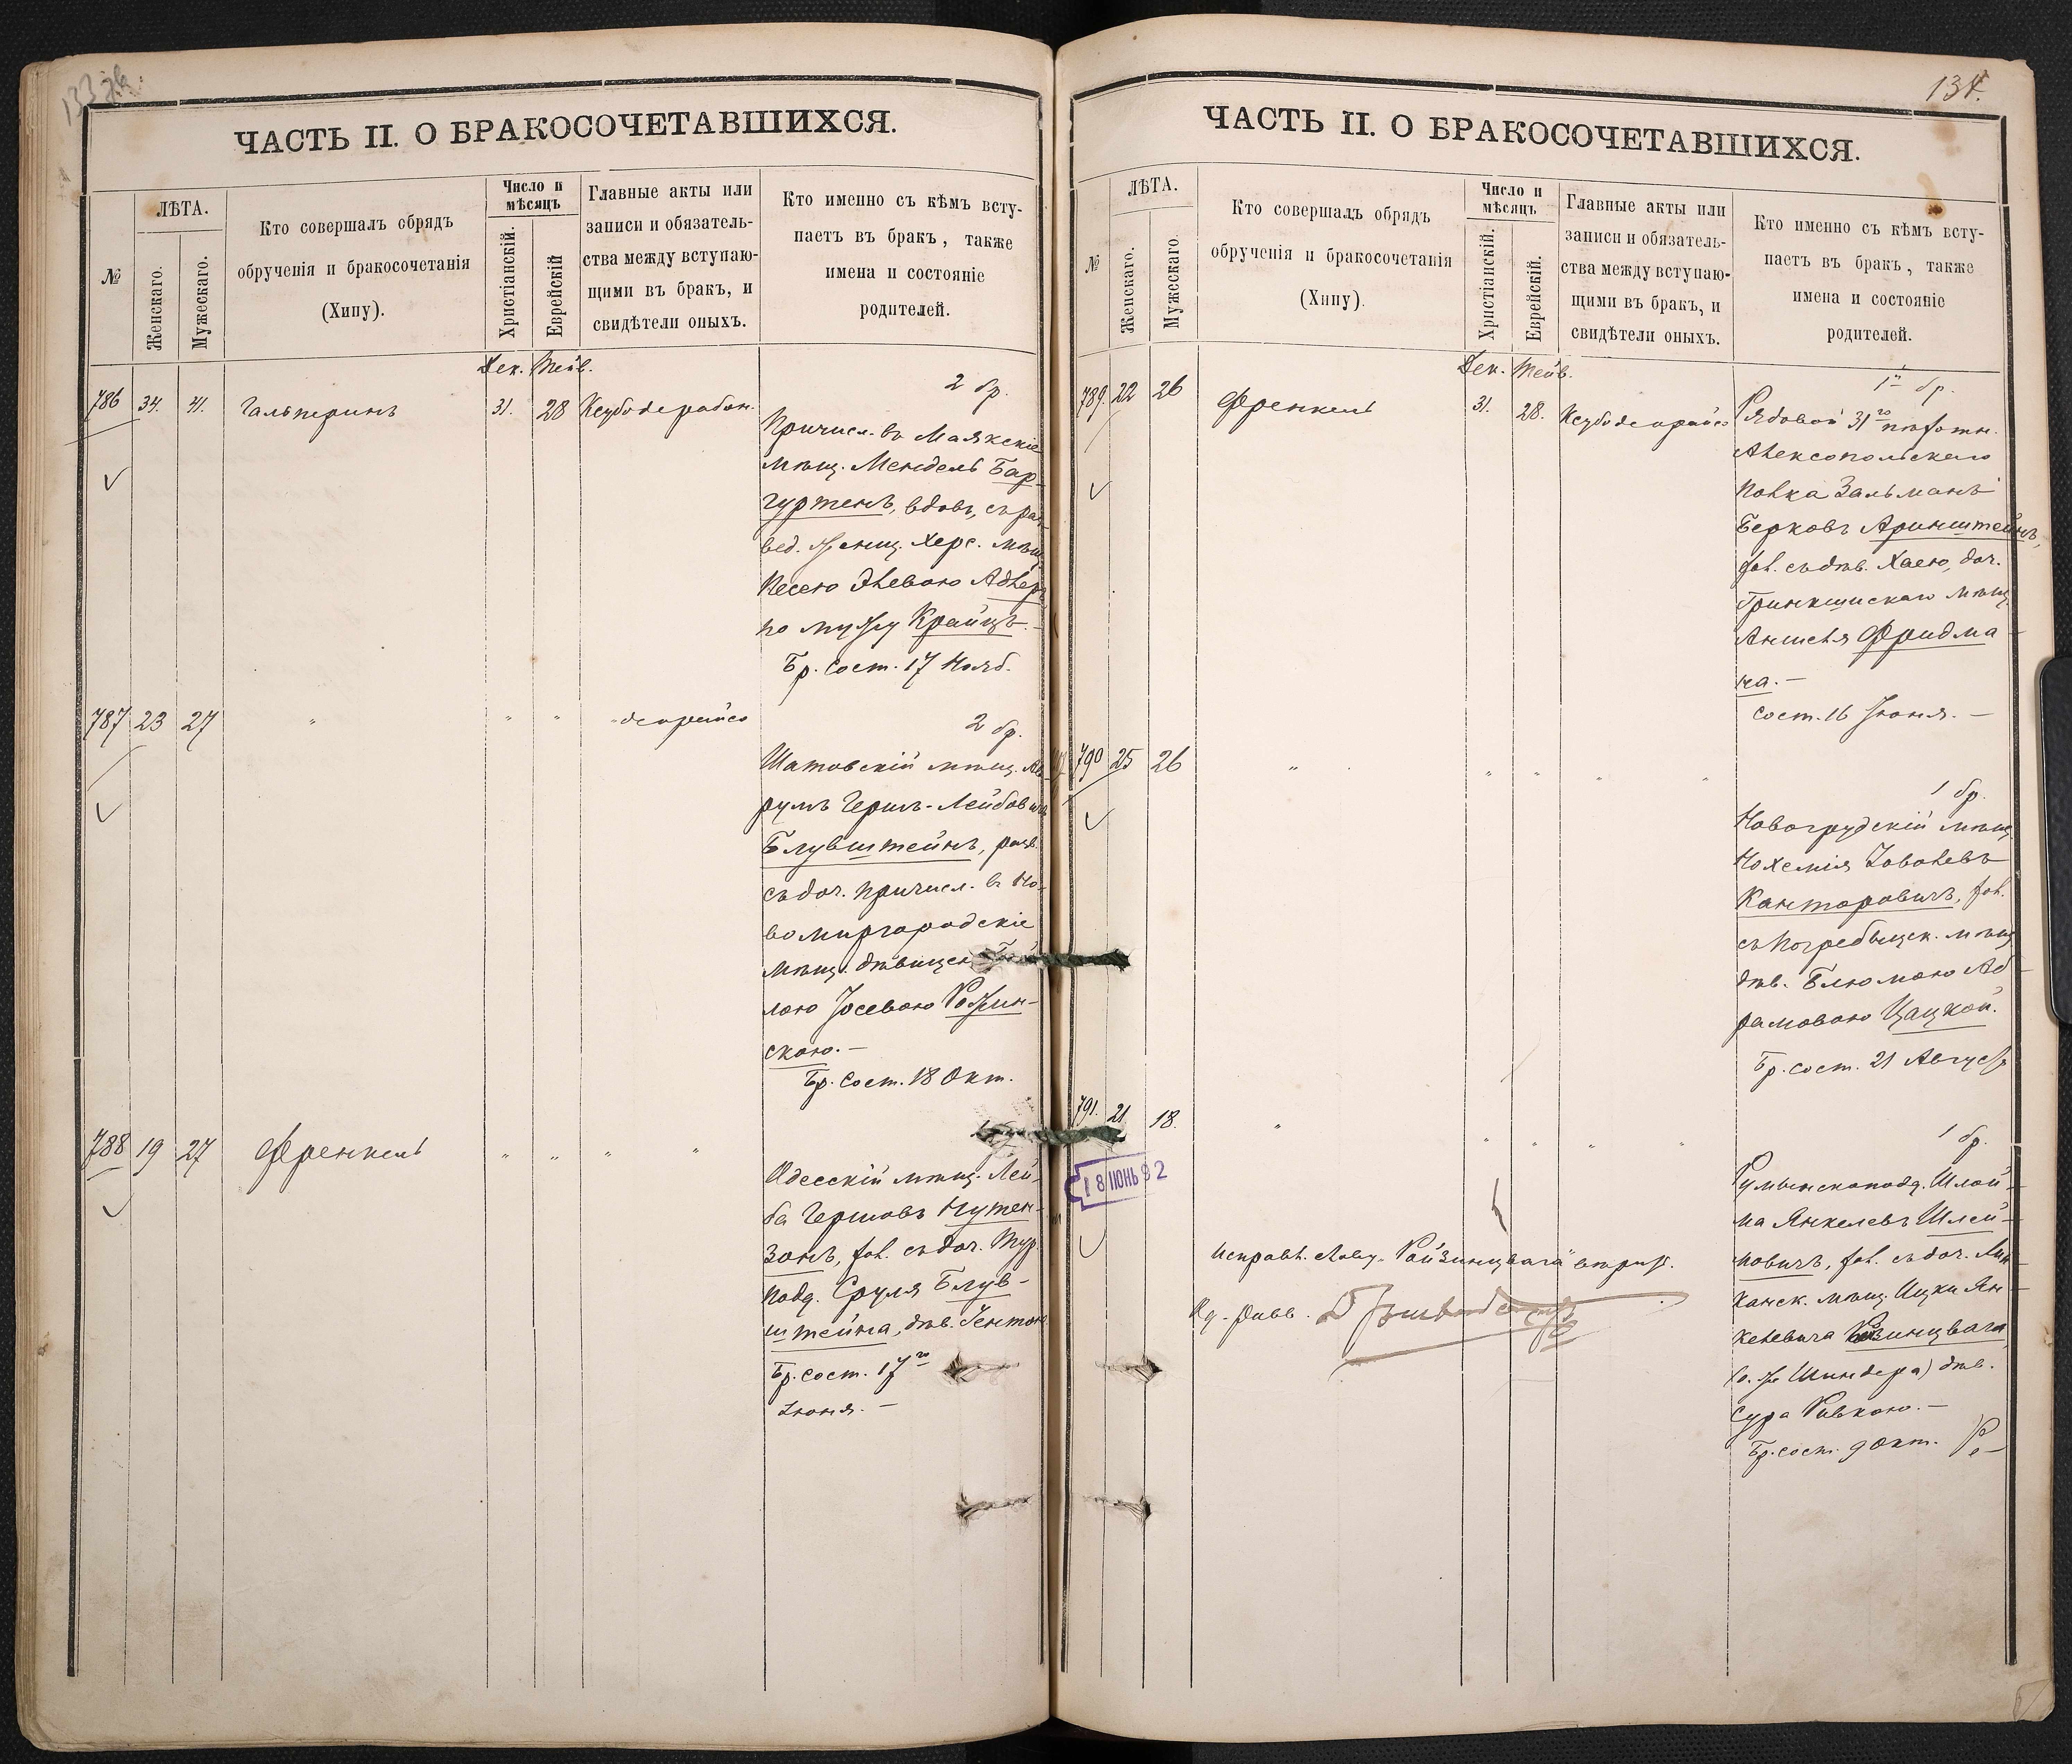 133 об.
ЧАСТЬ II. О БРАКОСОЧЕТАВШИХСЯ.
№
ЛѢТА.
Женскаго.
Мужескаго.
Кто совершалъ обрядъ
обрученія и бракосочетанія
(Хипу).
Число и
мѣсяцъ
Христіанскій.
Еврейскій
Главные акты или
записи и обязатель-
ства между вступаю-
щими въ бракъ, и
свидѣтели оныхъ.
Кто именно съ кѣмъ всту-
паетъ въ бракъ, также
имена и состояніе
родителей.
Дек. Тейв.
786 34. 41. Гальперинъ 31. 28 Ксубо дерабон.
2 бр.
Причисл. въ Маякскіе
мѣщ. Мендель Бар-
гуртенъ, вдовъ, съ раз-
вед. женщ. Херс. мѣщ.
Песею Элевою Адлеръ
по мужу Крайцъ.-
Бр. сост. 17 Нояб.
787 23 27 " " " " деорейсо
2 бр.
Шатовскій мѣщ. Ав
румъ Гершъ-Лейбовъ
Блувштейнъ, разв.
съ доч. причисл. въ Но-
вомиргородскіе
мѣщ. дѣвицею
лою Іосевою Рожин-
скою.-
Бр. сост. 18 Окт.
788 19 27 Френкель " " " "
Одесскій мѣщ. Лей-
ба Гершовъ Нутен-
зонъ, хол. съ доч. Тур.
подд. Сруля Блув-
штейна, дѣв. Гентою
Бр. сост. 17го
Іюня.-
134.
ЧАСТЬ II. О БРАКОСОЧЕТАВШИХСЯ.
№
ЛѢТА.
Женскаго.
Мужескаго.
Кто совершалъ обрядъ
обрученія и бракосочетанія
(Хипу).
Число и
мѣсяцъ
Христіанскій.
Еврейскій.
Главные акты или
записи и обязатель-
ства между вступаю-
щими въ бракъ, и
свидѣтели оныхъ.
Кто именно съ кѣмъ всту-
паетъ въ бракъ, также
имена и состояніе
родителей.
Дек. Тейв.
789. 22 26 Френкель 31. 28. Ксубо деорайсо
1й бр.
Рядовой 31го пѣхотн.
Алексопольскаго
полка Зальманъ
Берковъ Аринштейнъ,
хол. съ дѣв. Хаею, доч.
Гринкишскаго мѣщ.
Аншеля Фридма-
на.-
сост. 16 Іюня.-
790 25 26 " " " " "
1 бр.
Новогрудскій мѣщ.
Нохемія Іовелевъ
Канторовичъ, хол.
съ Погребыщск. мѣщ.
дѣв. Блюмою Аб-
рамовою Цацкой.
Бр. сост. 21 Августа
791. 21 18. " " " " "
18 ИЮНЬ 92
1 бр.
Румынскоподд. Шлой-
ма Янкелевъ Шлей-
мовичъ, хол. съ доч. Лип
канск. мѣщ. Ицки Ян-
келевича Ройзинцвага
(о. же Шиндера) дѣв.
Сура Ривкою.-
Бр. сост. 9 Окт.
Исправл. слову "Ройзинцвага" вѣрить.
Од. Равв.